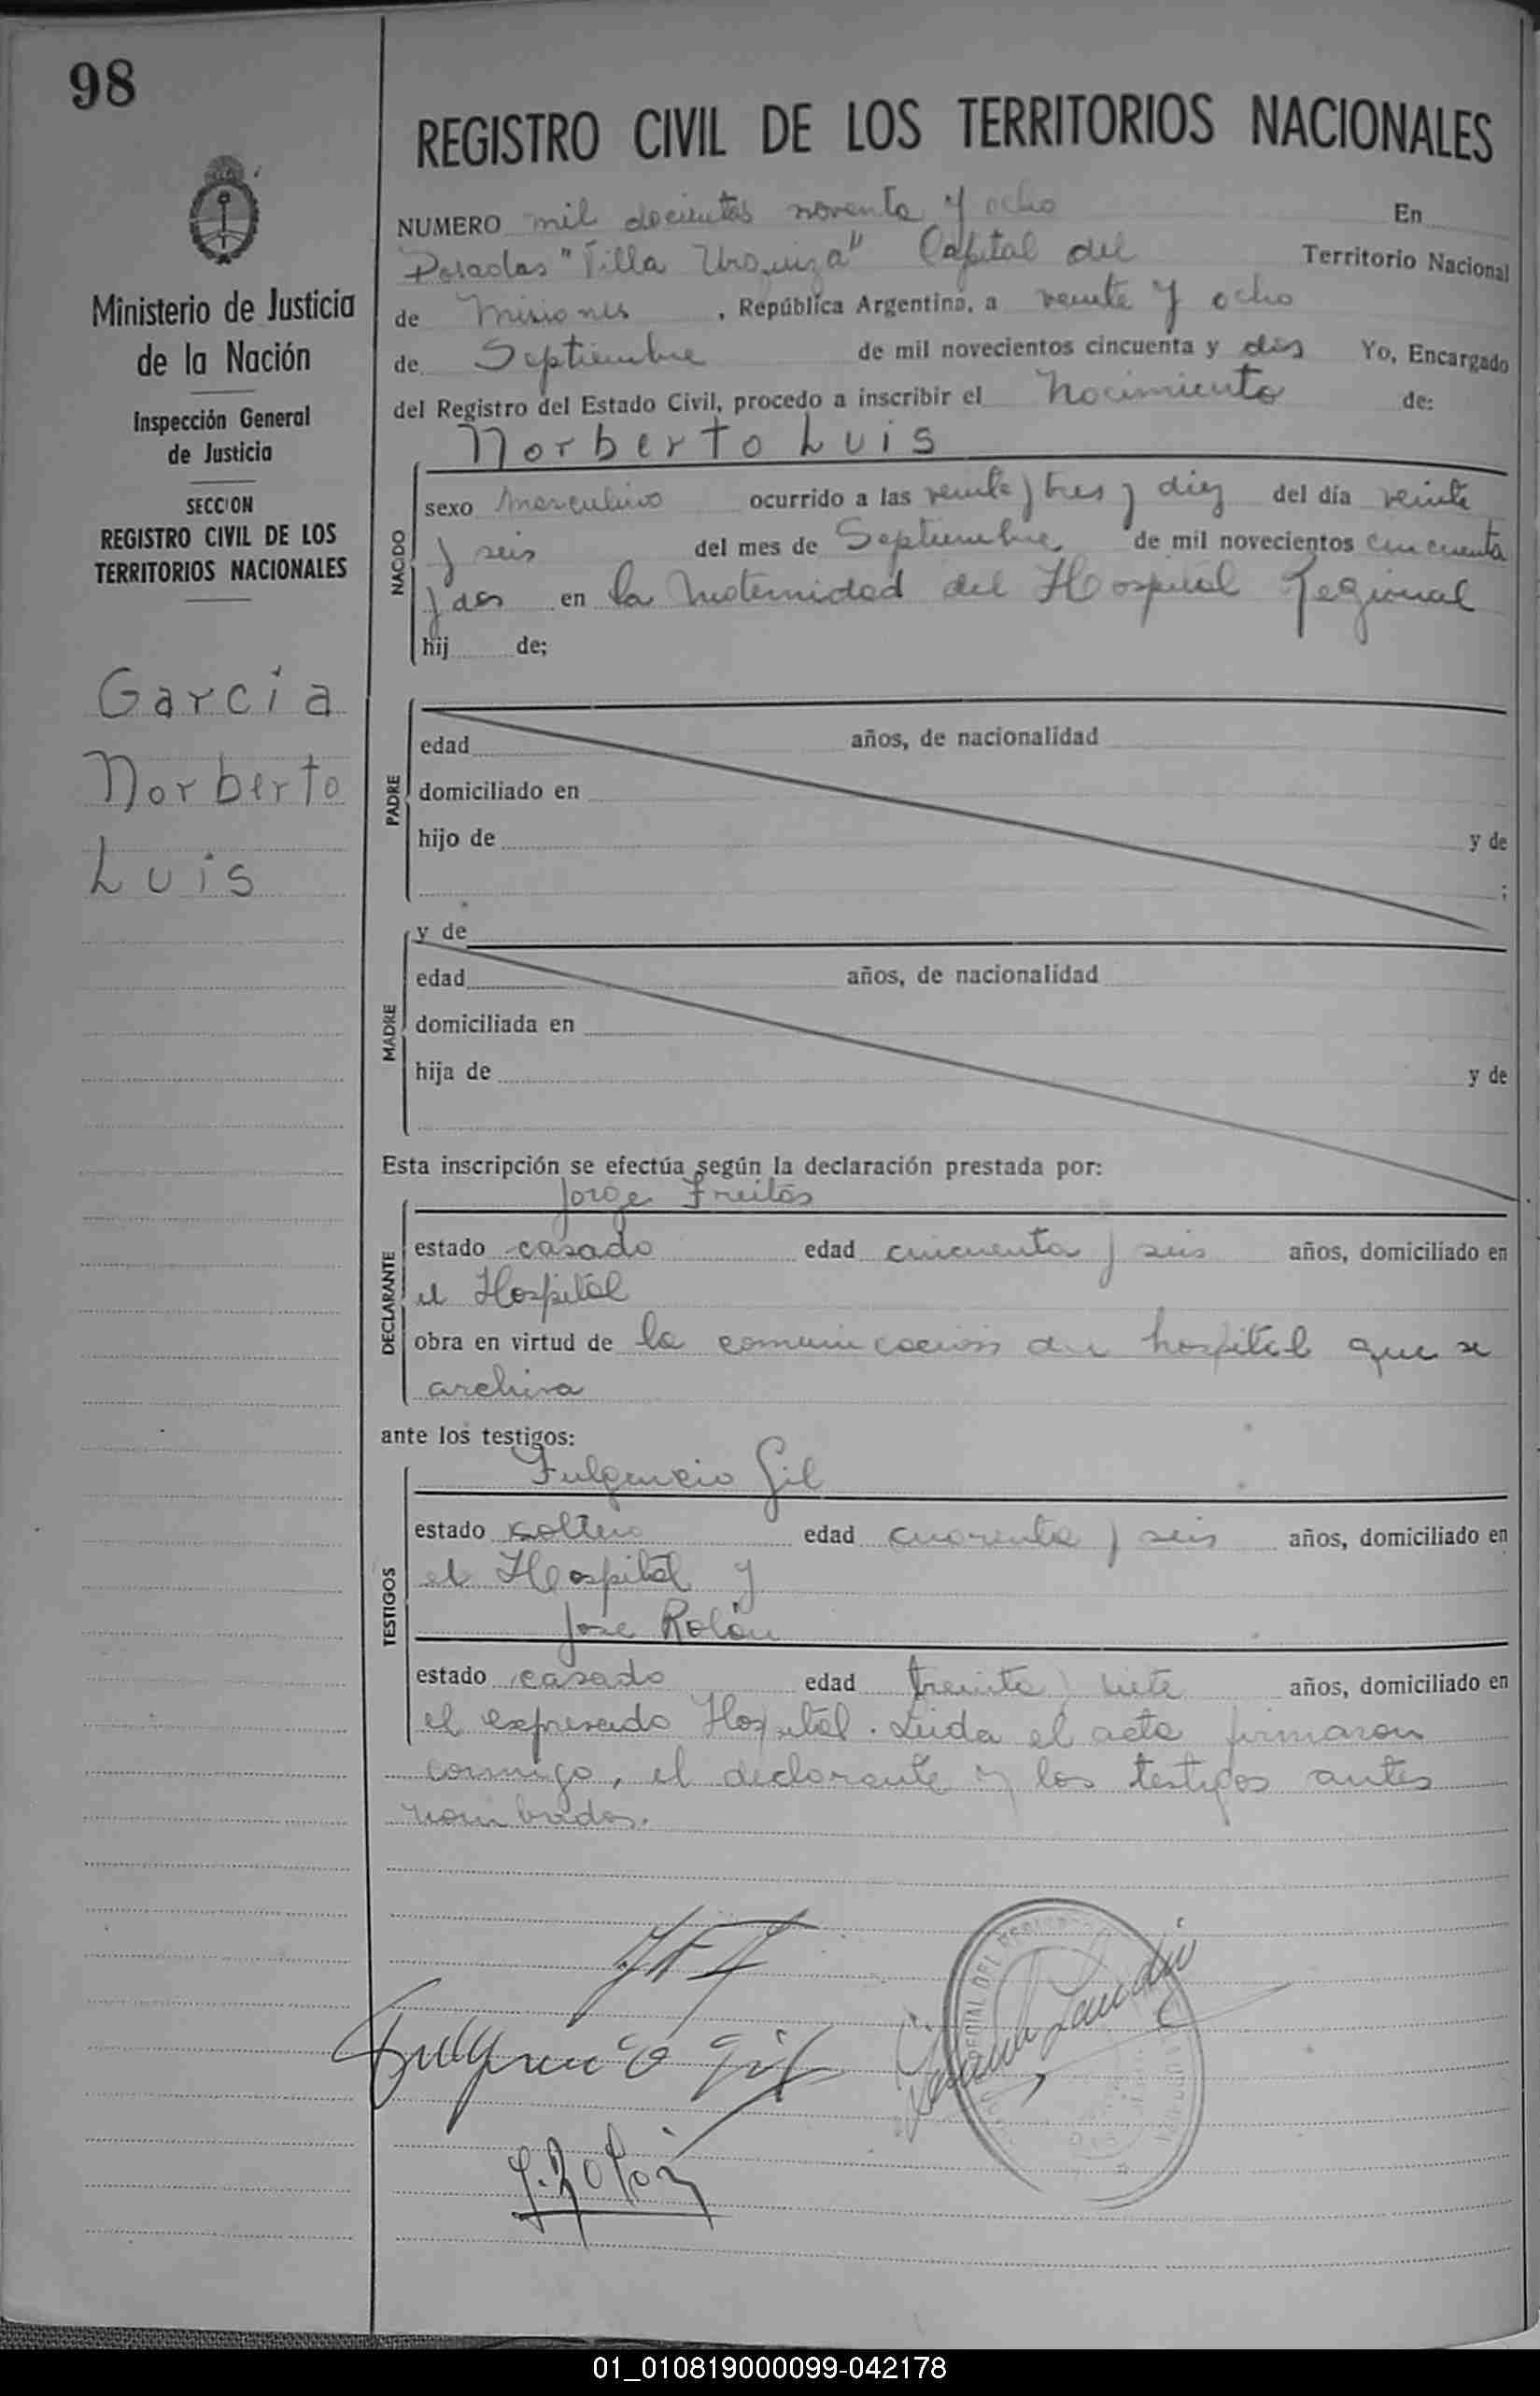 98
Ministerio de Justicia
de la Nación
Inspección General
de Justicia
SECCION
REGISTRO CIVIL DE LOS
TERRITORIOS NACIONALES
García
Norberto
Luis
REGISTRO CIVIL DE LOS TERRITORIOS NACIONALES
NUMERO mil docientos noventa y ocho En
Posadas "Villa Urquiza" Capital del Territorio Nacional
de Misiones, República Argentina, a veinte y ocho
de Septiembre de mil novecientos cincuenta y dos Yo, Encargado
del Registro del Estado Civil, procedo a inscribir el Nacimiento de:
Norberto Luis
NACIDO
sexo Masculino ocurrido a las veinte y tres y diez del día veinte
y seis del mes de Septiembre de mil novecientos cincuenta
y dos en la Maternidad del Hospital Regional
hij de;
PADRE
edad años, de nacionalidad
domiciliado en
hijo de y de
;
MADRE
y de
edad años, de nacionalidad
domiciliada en
hija de y de
Esta inscripción se efectúa según la declaración prestada por:
Jorge Freitas
DECLARANTE
estado casado edad cincuenta y seis años, domiciliado en
el Hospital
obra en virtud de la comunicación del hospital que se
archiva
ante los testigos:
Fulgencio Gil
TESTIGOS
estado soltero edad cuarenta y seis años, domiciliado en
el Hospital y
José Rolón
estado casado edad treinta y siete años, domiciliado en
el expresado Hospital. Leida el acta firmaron
conmigo, el declarante y los testigos antes
nombrados.
Fulgencio Gil
J. Rolón
01_010819000099-042178